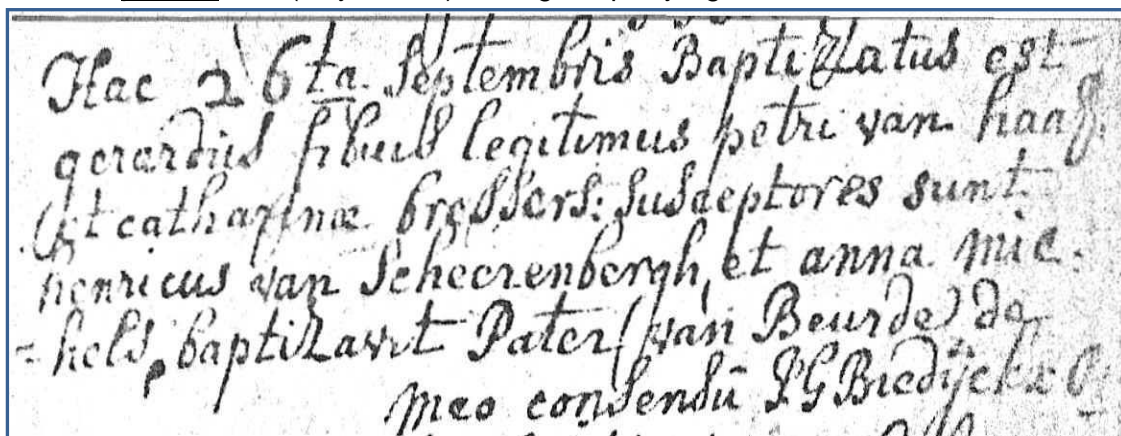 Hac 26ta Septembris Baptizatus est
gerardus filius legitimus petri van haaf
Et catharinæ brossers: susceptores sunt
henricus van Scheerenbergh, et anna mic
=hels, baptizavit Pater (van Beurde) de
meo consensu PG Biedijckx